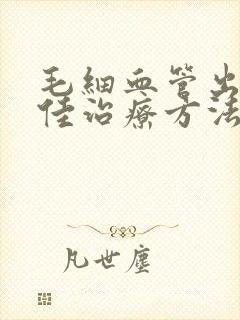 毛細血管出
佳治療方法
凡世塵